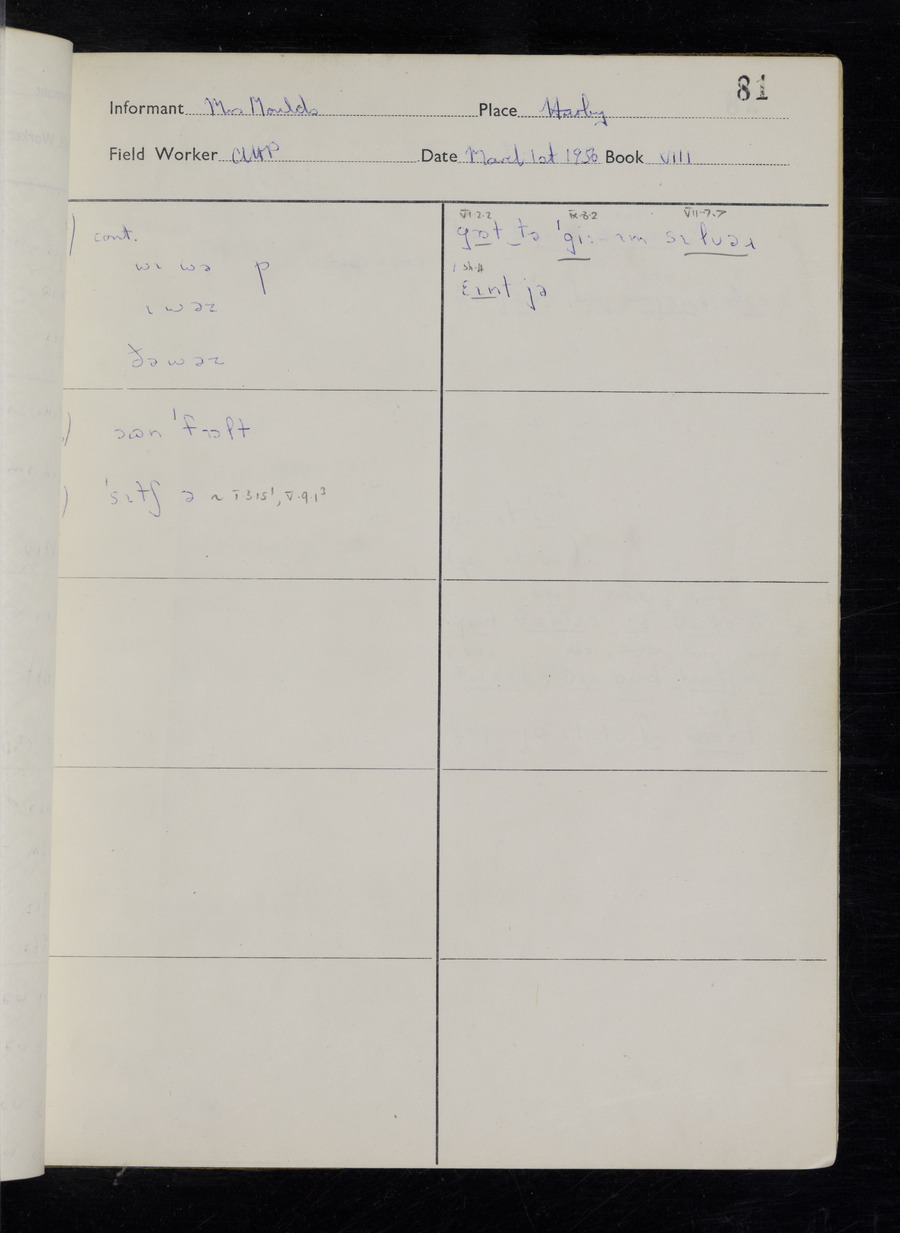 81
Informant Mrs Moulds Place Harby
Field Worker Date March 1st 1956 Book VIII
) cont.
wɪ wə p
ɪ wəz
ðə wəz
) əʊn 'fɔːlt
) 'sɪtʃ ə ~ I 3.15¹, V.9.1³
VI.2.2 IX.8.2 VII.7.7
gɒt tə 'giː ɪm sɪlvəɹ
ɛɪnt jə